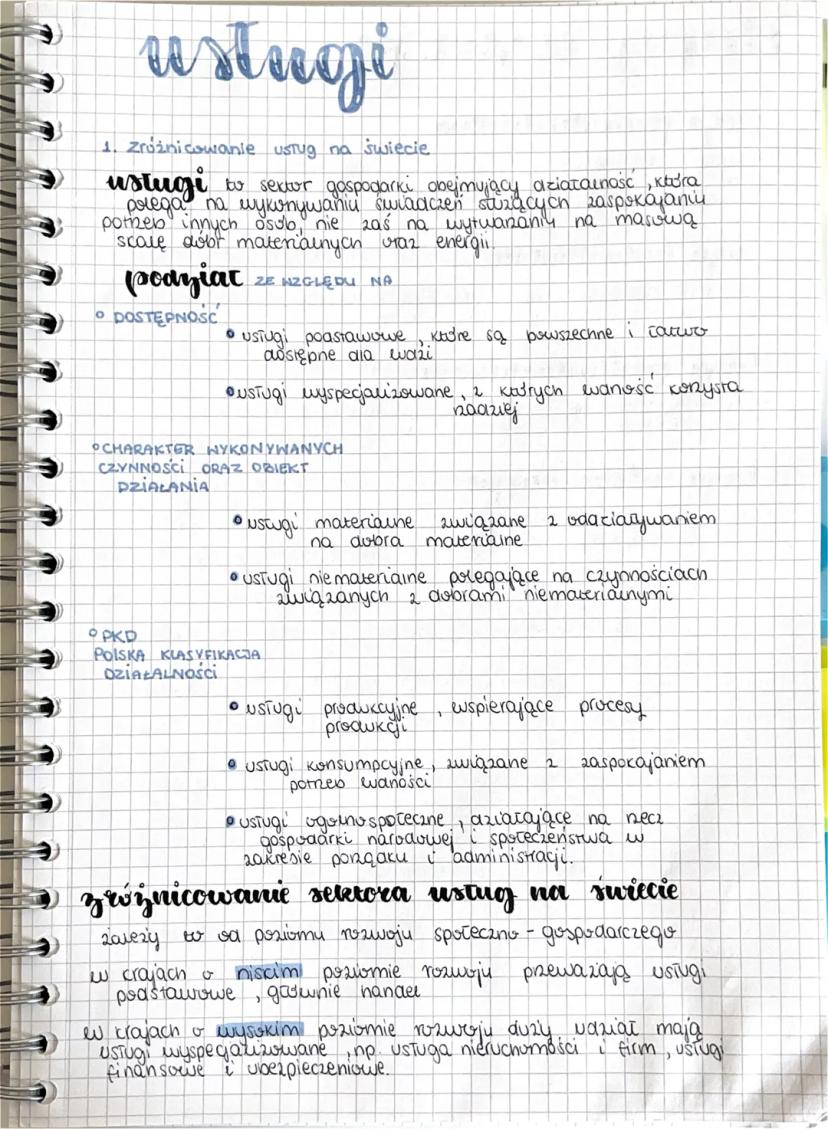 usługi
1. Zróżnicowanie usług na świecie
usługi to sektor gospodarki obejmujący działalność, która
polega na wykonywaniu świadczeń służących zaspokajaniu
potrzeb innych osób, nie zaś na wytwarzaniu na masową
scalę dóbr materialnych oraz energii.
podział ZE WZGLĘDU NA
DOSTĘPNOŚĆ
usługi podstawowe, które są powszechne i łatwo
dostępne dla ludzi
usługi wyspecjalizowane, z których ludność korzysta
rzadziej
CHARAKTER WYKONYWANYCH
CZYNNOŚCI ORAZ OBIEKT
DZIAŁANIA
usługi materialne związane z oddziaływaniem
na dobra materialne
usługi niematerialne polegające na czynnościach
związanych z dobrami niematerialnymi
PKD
POLSKA KLASYFIKACJA
DZIAŁALNOŚCI
usługi produkcyjne, wspierające procesy
produkcji
usługi konsumpcyjne, związane z zaspokajaniem
potrzeb ludności
usługi ogólnospołeczne, działające na rzecz
gospodarki narodowej i społeczeństwa w
zakresie porządku i administracji.
zróżnicowanie sektora usług na świecie
zależy to od poziomu rozwoju społeczno-gospodarczego
w krajach o niscim poziomie rozwoju przeważają usługi
podstawowe, głównie handel
w krajach o wysokim poziomie rozwoju duży udział mają
usługi wyspecjalizowane, np. usługa nieruchomości i firm, usługi
finansowe i ubezpieczeniowe.